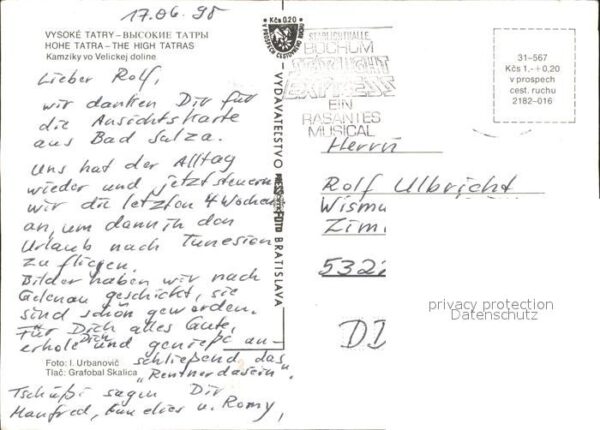 17.06.98
VYSOKÉ TATRY – ВЫСОКИЕ ТАТРЫ
HOHE TATRA – THE HIGH TATRAS
Kamzíky vo Velickej doline
Lieber Rolf,
wir danken Dir für
die Ansichtskarte
aus Bad Sulza.
Uns hat der Alltag
wieder und jetzt steuern
wir die letzten 4 Wochen
an, um dann in den
Urlaub nach Tunesien
zu fliegen.
Bilder haben wir nach
Gelenau geschickt, sie
sind schön geworden.
Für Dich alles Gute,
erhole Dich und genieße an-
schließend das
"Rentnerdasein".
Foto: I. Urbanovič
Tlač: Grafobal Skalica
Tschüßi sagen Dir
Manfred, u. Romy,
Kčs 0,20
V PROSPECH CESTOVNÉHO RUCHU
VYDAVATEĽSTVO
PRESSFOTO
BRATISLAVA
STARLIGHTHALLE
BOCHUM
STARLIGHT
EXPRESS
EIN
RASANTES
MUSICAL
31–567
Kčs 1,- +0,20
v prospech
cest. ruchu
2182–016
Herrn
Rolf Ulbricht
Wismu
Zim
532
privacy protection
Datenschutz